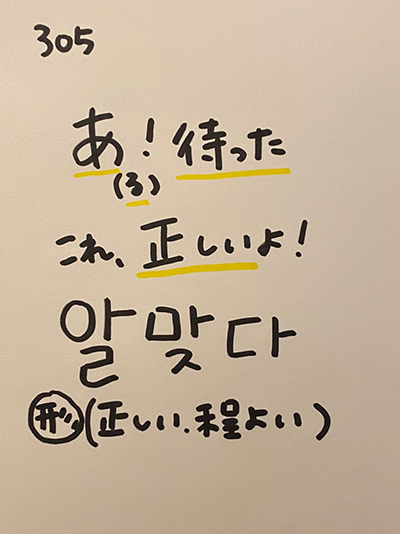 305
あ！待った
(る)
これ、正しいよ！
알맞다
形(正しい、程よい)